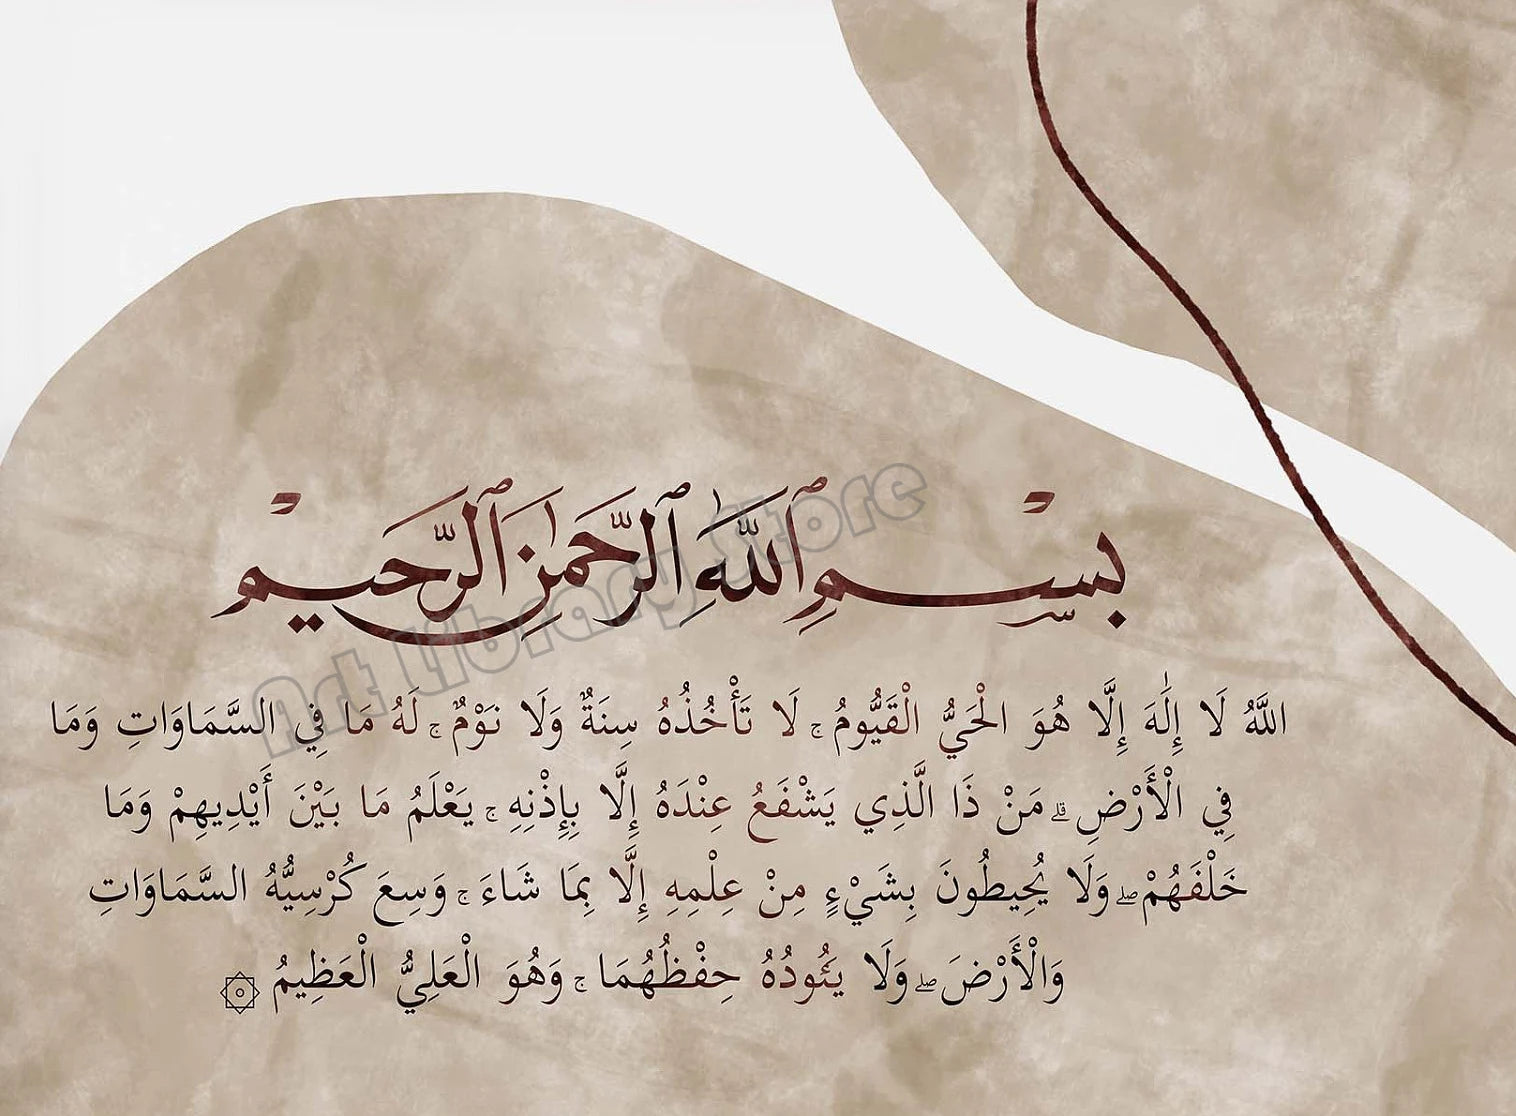 بِسْمِ ٱللَّهِ ٱلرَّحْمَٰنِ ٱلرَّحِيمِ
Art Library Store
اللَّهُ لَا إِلَٰهَ إِلَّا هُوَ الْحَيُّ الْقَيُّومُ ۚ لَا تَأْخُذُهُ سِنَةٌ وَلَا نَوْمٌ ۚ لَهُ مَا فِي السَّمَاوَاتِ وَمَا
فِي الْأَرْضِ ۗ مَنْ ذَا الَّذِي يَشْفَعُ عِنْدَهُ إِلَّا بِإِذْنِهِ ۚ يَعْلَمُ مَا بَيْنَ أَيْدِيهِمْ وَمَا
خَلْفَهُمْ ۖ وَلَا يُحِيطُونَ بِشَيْءٍ مِنْ عِلْمِهِ إِلَّا بِمَا شَاءَ ۚ وَسِعَ كُرْسِيُّهُ السَّمَاوَاتِ
وَالْأَرْضَ ۖ وَلَا يَئُودُهُ حِفْظُهُمَا ۚ وَهُوَ الْعَلِيُّ الْعَظِيمُ ۝